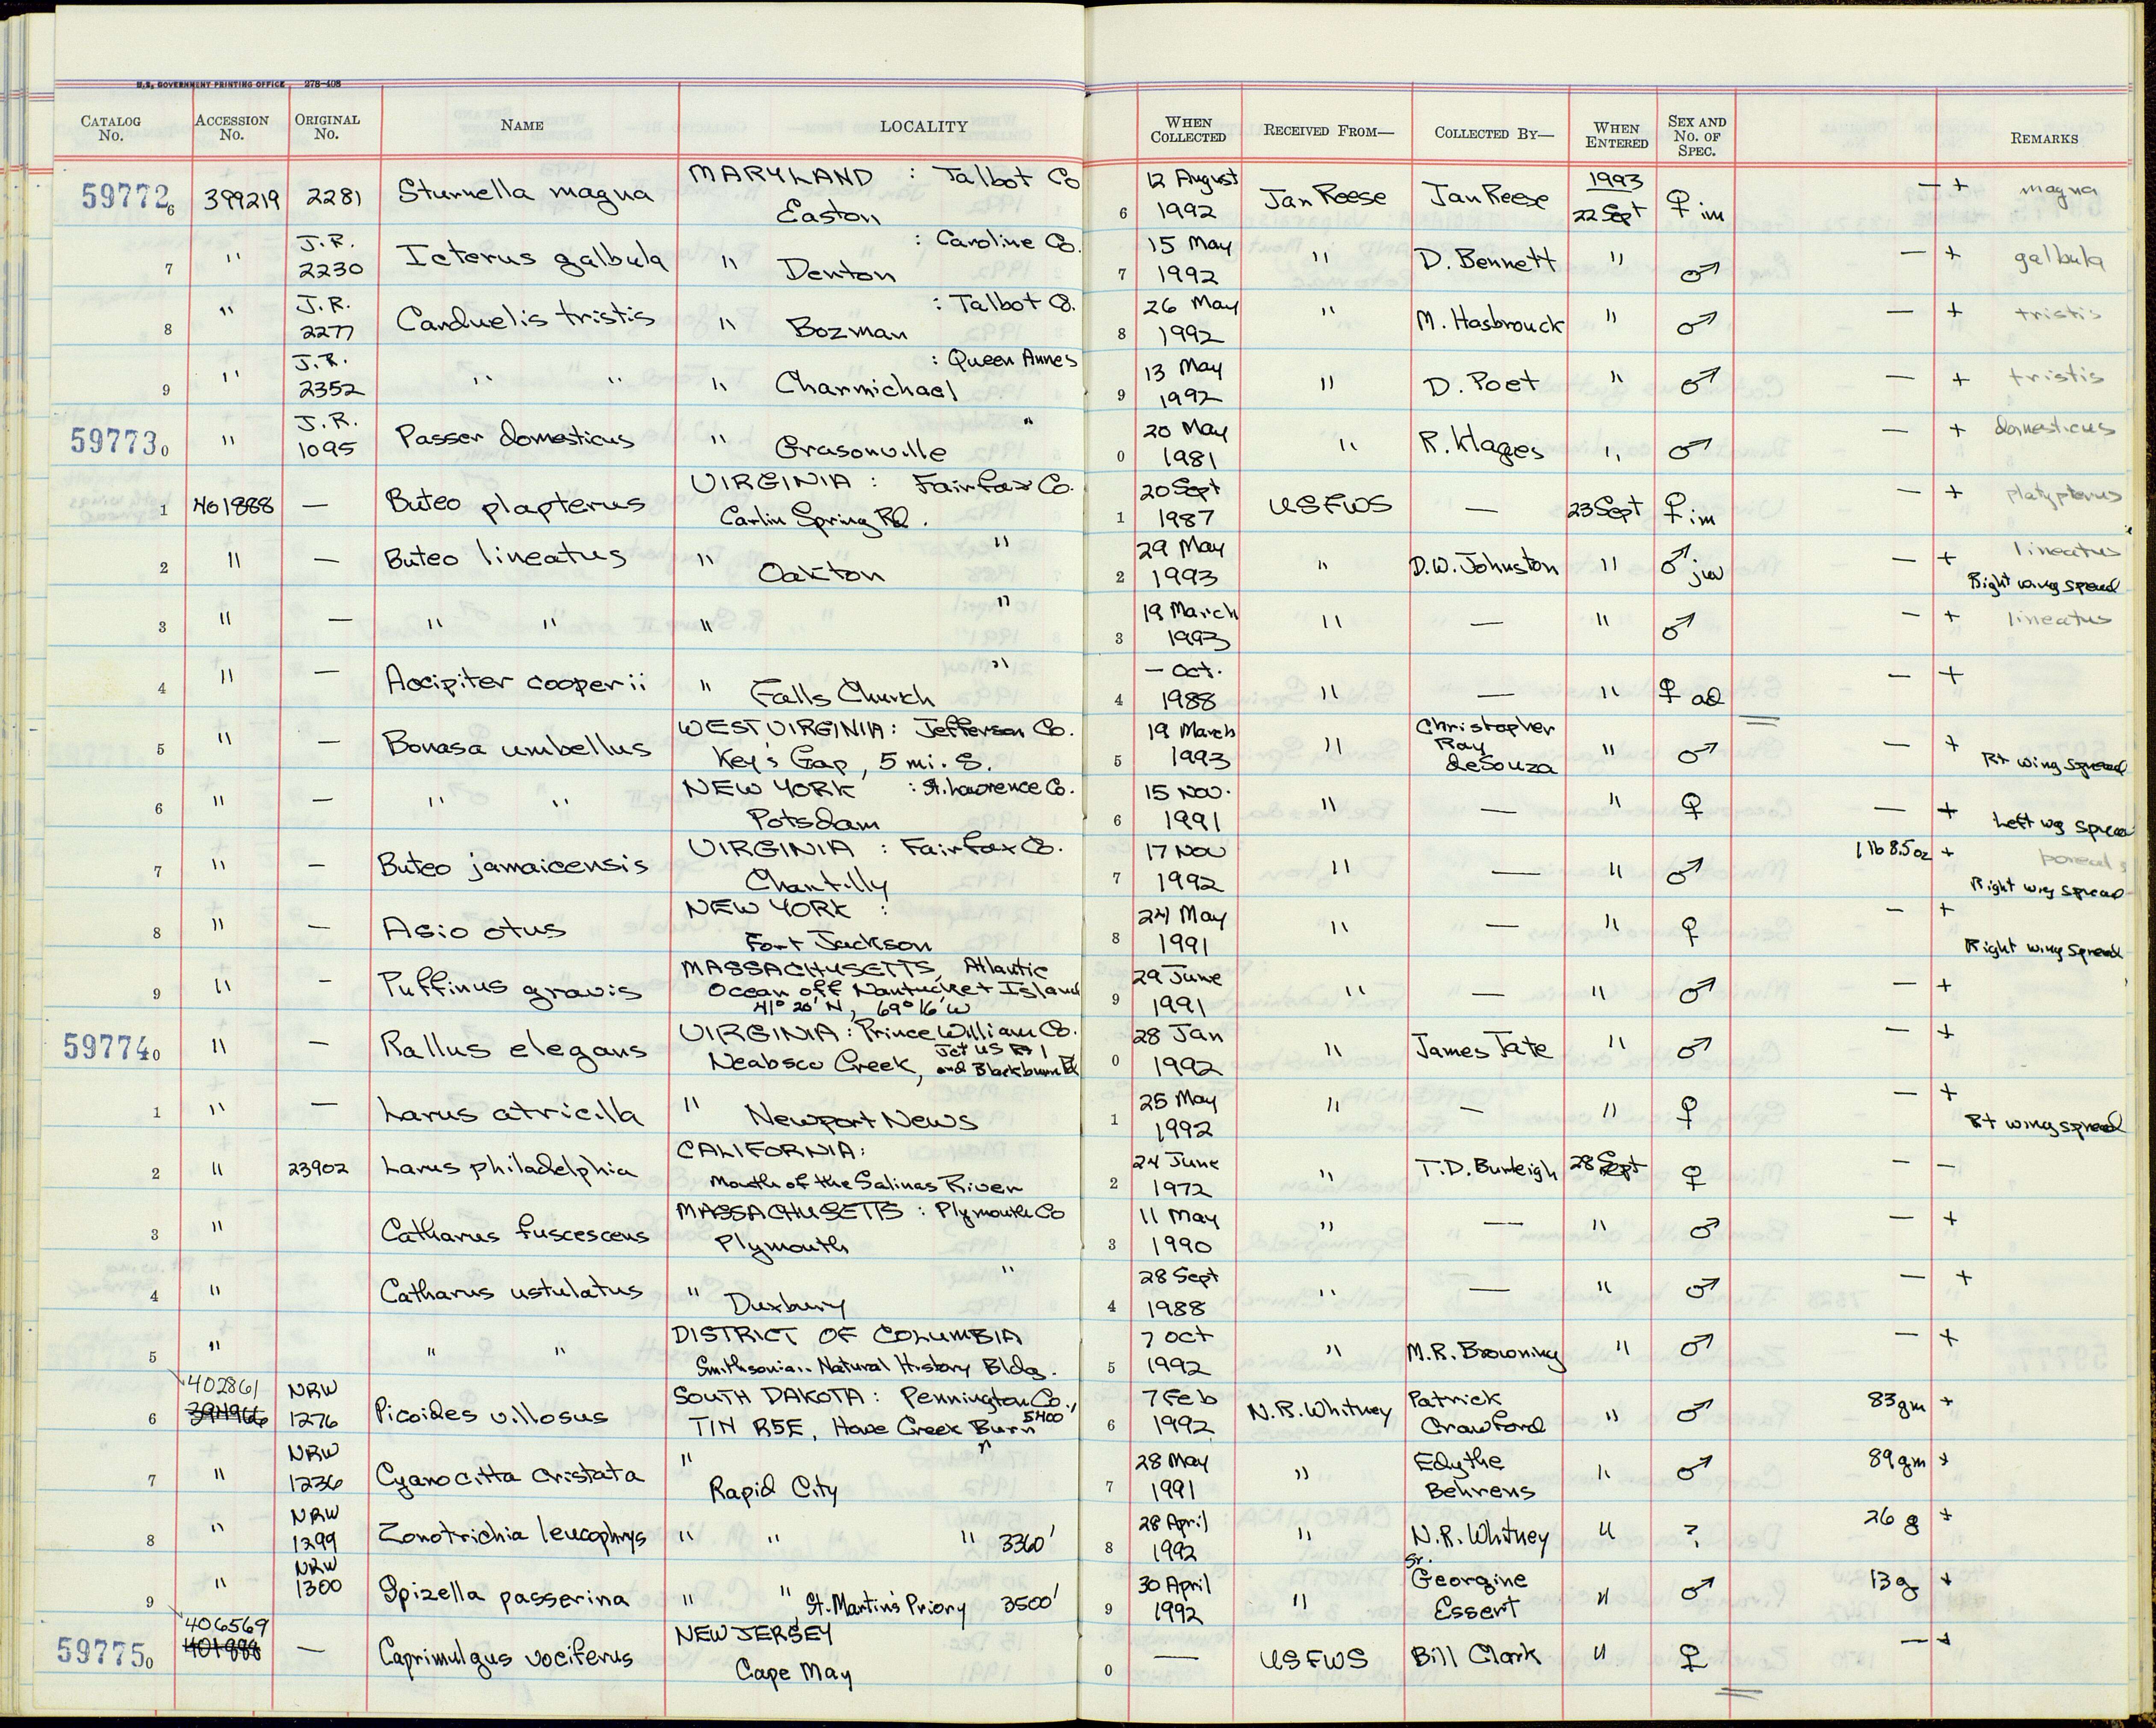 U.S. GOVERNMENT PRINTING OFFICE 278-408
CATALOG No. ACCESSION No. ORIGINAL No. NAME LOCALITY WHEN COLLECTED RECEIVED FROM— COLLECTED BY— WHEN ENTERED SEX AND No. OF SPEC. REMARKS
59772 6 399219 2281 Sturnella magna MARYLAND : Talbot Co Easton 6 12 August 1992 Jan Reese Jan Reese 1993 22 Sept ♀ im — + magna
7 " J.R. 2230 Icterus galbula " : Caroline Co. Denton 7 15 May 1992 " D. Bennett " ♂ — + galbula
8 " J.R. 2277 Carduelis tristis " : Talbot Co. Bozman 8 26 May 1992 " M. Hasbrouck " ♂ — + tristis
9 " J.R. 2352 " " " : Queen Annes Charmichael 9 13 May 1992 " D. Poet " ♂ — + tristis
59773 0 " J.R. 1095 Passer domesticus " " Grasonville 0 20 May 1981 " R. Klages " ♂ — + domesticus
1 401888 — Buteo plapterus VIRGINIA : Fairfax Co. Carlin Spring Rd. 1 20 Sept 1987 USFWS — 23 Sept ♀ im — + platypterus
2 " — Buteo lineatus " " Oakton 2 29 May 1993 " D.W. Johnston " ♂ juv — + lineatus Right wing spread
3 " — " " " " 3 19 March 1993 " — " ♂ — + lineatus
4 " — Accipiter cooperii " " Falls Church 4 — Oct. 1988 " — " ♀ ad — +
5 " — Bonasa umbellus WEST VIRGINIA : Jefferson Co. Key's Gap, 5 mi. S. 5 19 March 1993 " Christopher Ray deSouza " ♂ — + Rt wing spread
6 " — " " NEW YORK : St. Lawrence Co. Potsdam 6 15 Nov. 1991 " — " ♀ — + Left wg spread
7 " — Buteo jamaicensis VIRGINIA : Fairfax Co. Chantilly 7 17 Nov 1992 " — " ♂ 1 lb 8.5 oz + borealis Right wing spread
8 " — Asio otus NEW YORK : Fort Jackson 8 24 May 1991 " — " ♀ — + Right wing spread
9 " — Puffinus gravis MASSACHUSETTS, Atlantic Ocean off Nantucket Island 41° 20' N, 69° 16' W 9 29 June 1991 " — " ♂ — +
59774 0 " — Rallus elegans VIRGINIA : Prince William Co. Neabsco Creek, Jct US Rt 1 and Blackburn Rd 0 28 Jan 1992 " James Tate " ♂ — +
1 " — Larus atricilla " Newport News 1 25 May 1992 " — " ♀ — + Rt wing spread
2 " 23902 Larus philadelphia CALIFORNIA: Mouth of the Salinas River 2 24 June 1972 " T.D. Burleigh 28 Sept ♀ — —
3 " Catharus fuscescens MASSACHUSETTS : Plymouth Co Plymouth 3 11 May 1990 " — " ♂ — +
4 " Catharus ustulatus " " Duxbury 4 28 Sept 1988 " — " ♂ — +
5 " " " DISTRICT OF COLUMBIA Smithsonian Natural History Bldg. 5 7 Oct 1992 " M.R. Browning " ♂ — +
6 402861 394966 NRW 1276 Picoides villosus SOUTH DAKOTA : Pennington Co., T1N R5E, Howe Creek Burn 5400 6 7 Feb 1992 N.R. Whitney Patrick Crawford " ♂ 83 gm +
7 " NRW 1236 Cyanocitta cristata " " Rapid City 7 28 May 1991 " Edythe Behrens " ♂ 89 gm +
8 " NRW 1299 Zonotrichia leucophrys " " " 3360' 8 28 April 1992 " N.R. Whitney " ? 26 g +
9 " NRW 1300 Spizella passerina " " , St. Martin's Priory 3500' 9 30 April 1992 " Sr. Georgine Essert " ♂ 13 g +
59775 0 406569 401888 — Caprimulgus vociferus NEW JERSEY Cape May 0 — USFWS Bill Clark " ♀ — +